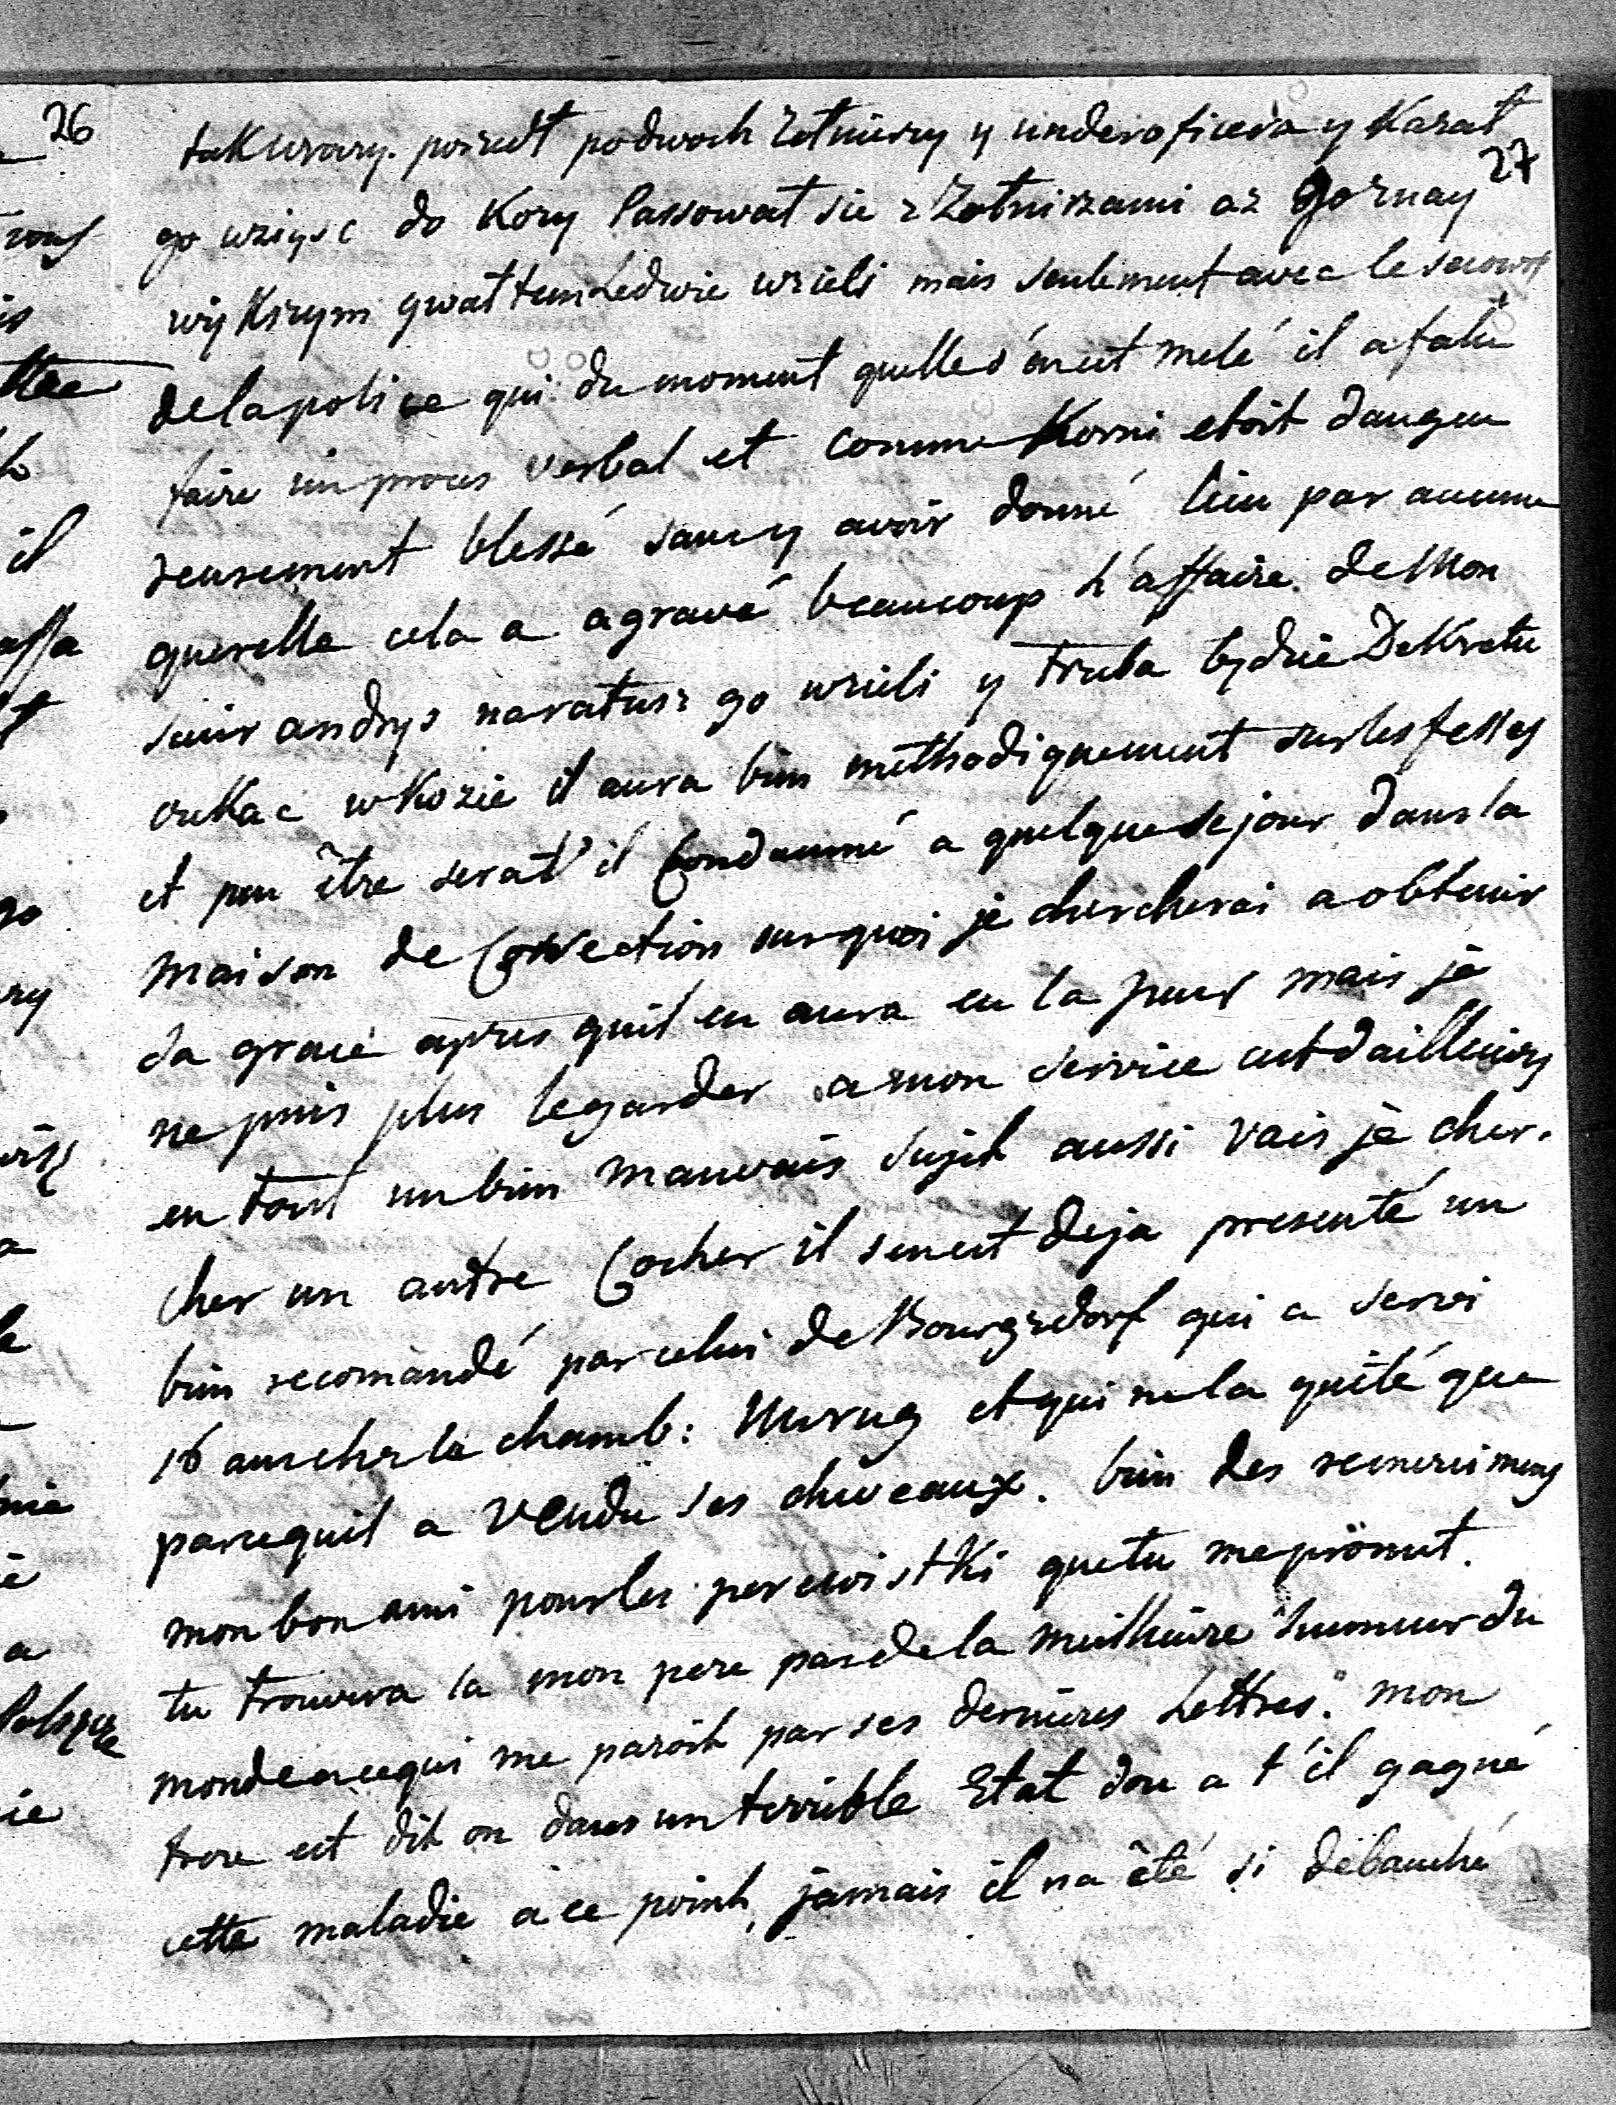 26
27
tak wrary. poszedt podwoch zotnierzy y underoficera y Kazat
go wziysc do Kozy Passowat sie z Zotnirzami az go znay
wiykszym gwattem Ledwie wzieli mais seulement avec le secours
de la police qui du moment quelle s'en est melé il a falu
faire un proces verbal et comme Korni etoit dange
reusement blessé sans y avoir donné lieu par aucune
querelle cela a agravé beaucoup L'affaire de Mon
sieur andrys naratusz go wzieli y trzeba bydzie Dekretu
czekac w Kozie il aura bien methodiquement sur les fesses
et peu être serat'il Condamné a quelque sejour dans la
maison de Correction surquoi je chercherai a obtenir
sa grace apres quil en aura eu la peur mais je
ne puis plus le garder a mon service cest dailleurs
en tout un bien mauvais sujet aussi vais je cher-
cher un autre Cocher il s'en est deja presenté un
bien recomandé par celui de Bourgsdorf qui a servi
16 ans chez le chamb: et qui ne la quité que
parcequil a vendu ses cheveaux. bien des remerciments
mon bon ami pour les perewistki que tu me promet.
tu trouvera la mon pere pas de la meilleure humeur du
monde a ce qui me paroit par ses dernieres Lettres. mon
frere est dit on dans un terrible Etat dou a t'il gagné
cette maladie a ce point, jamais il na été si debauché